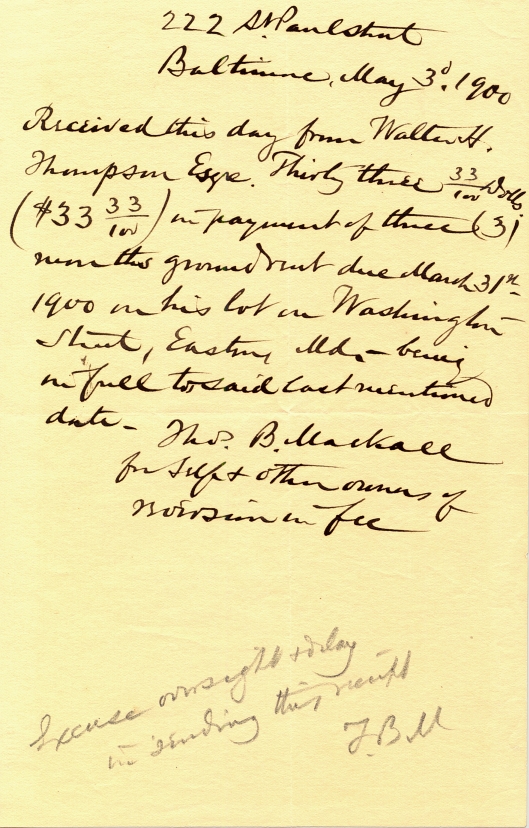 222 St. Paul street
Baltimore, May 3d. 1900
Received this day from Walter H.
Thompson Esqe. Thirty three 33/100 Dolls.
($33 33/100) in payment of three (3)
months ground rent due March 31st
1900 on his lot on Washington
Street, Easton, Md. – being
in full to said last mentioned
date –
Thos. B. Mackall
for Self & other owners of
reversion in fee
Excuse oversight & delay
in sending this receipt
T.B.M